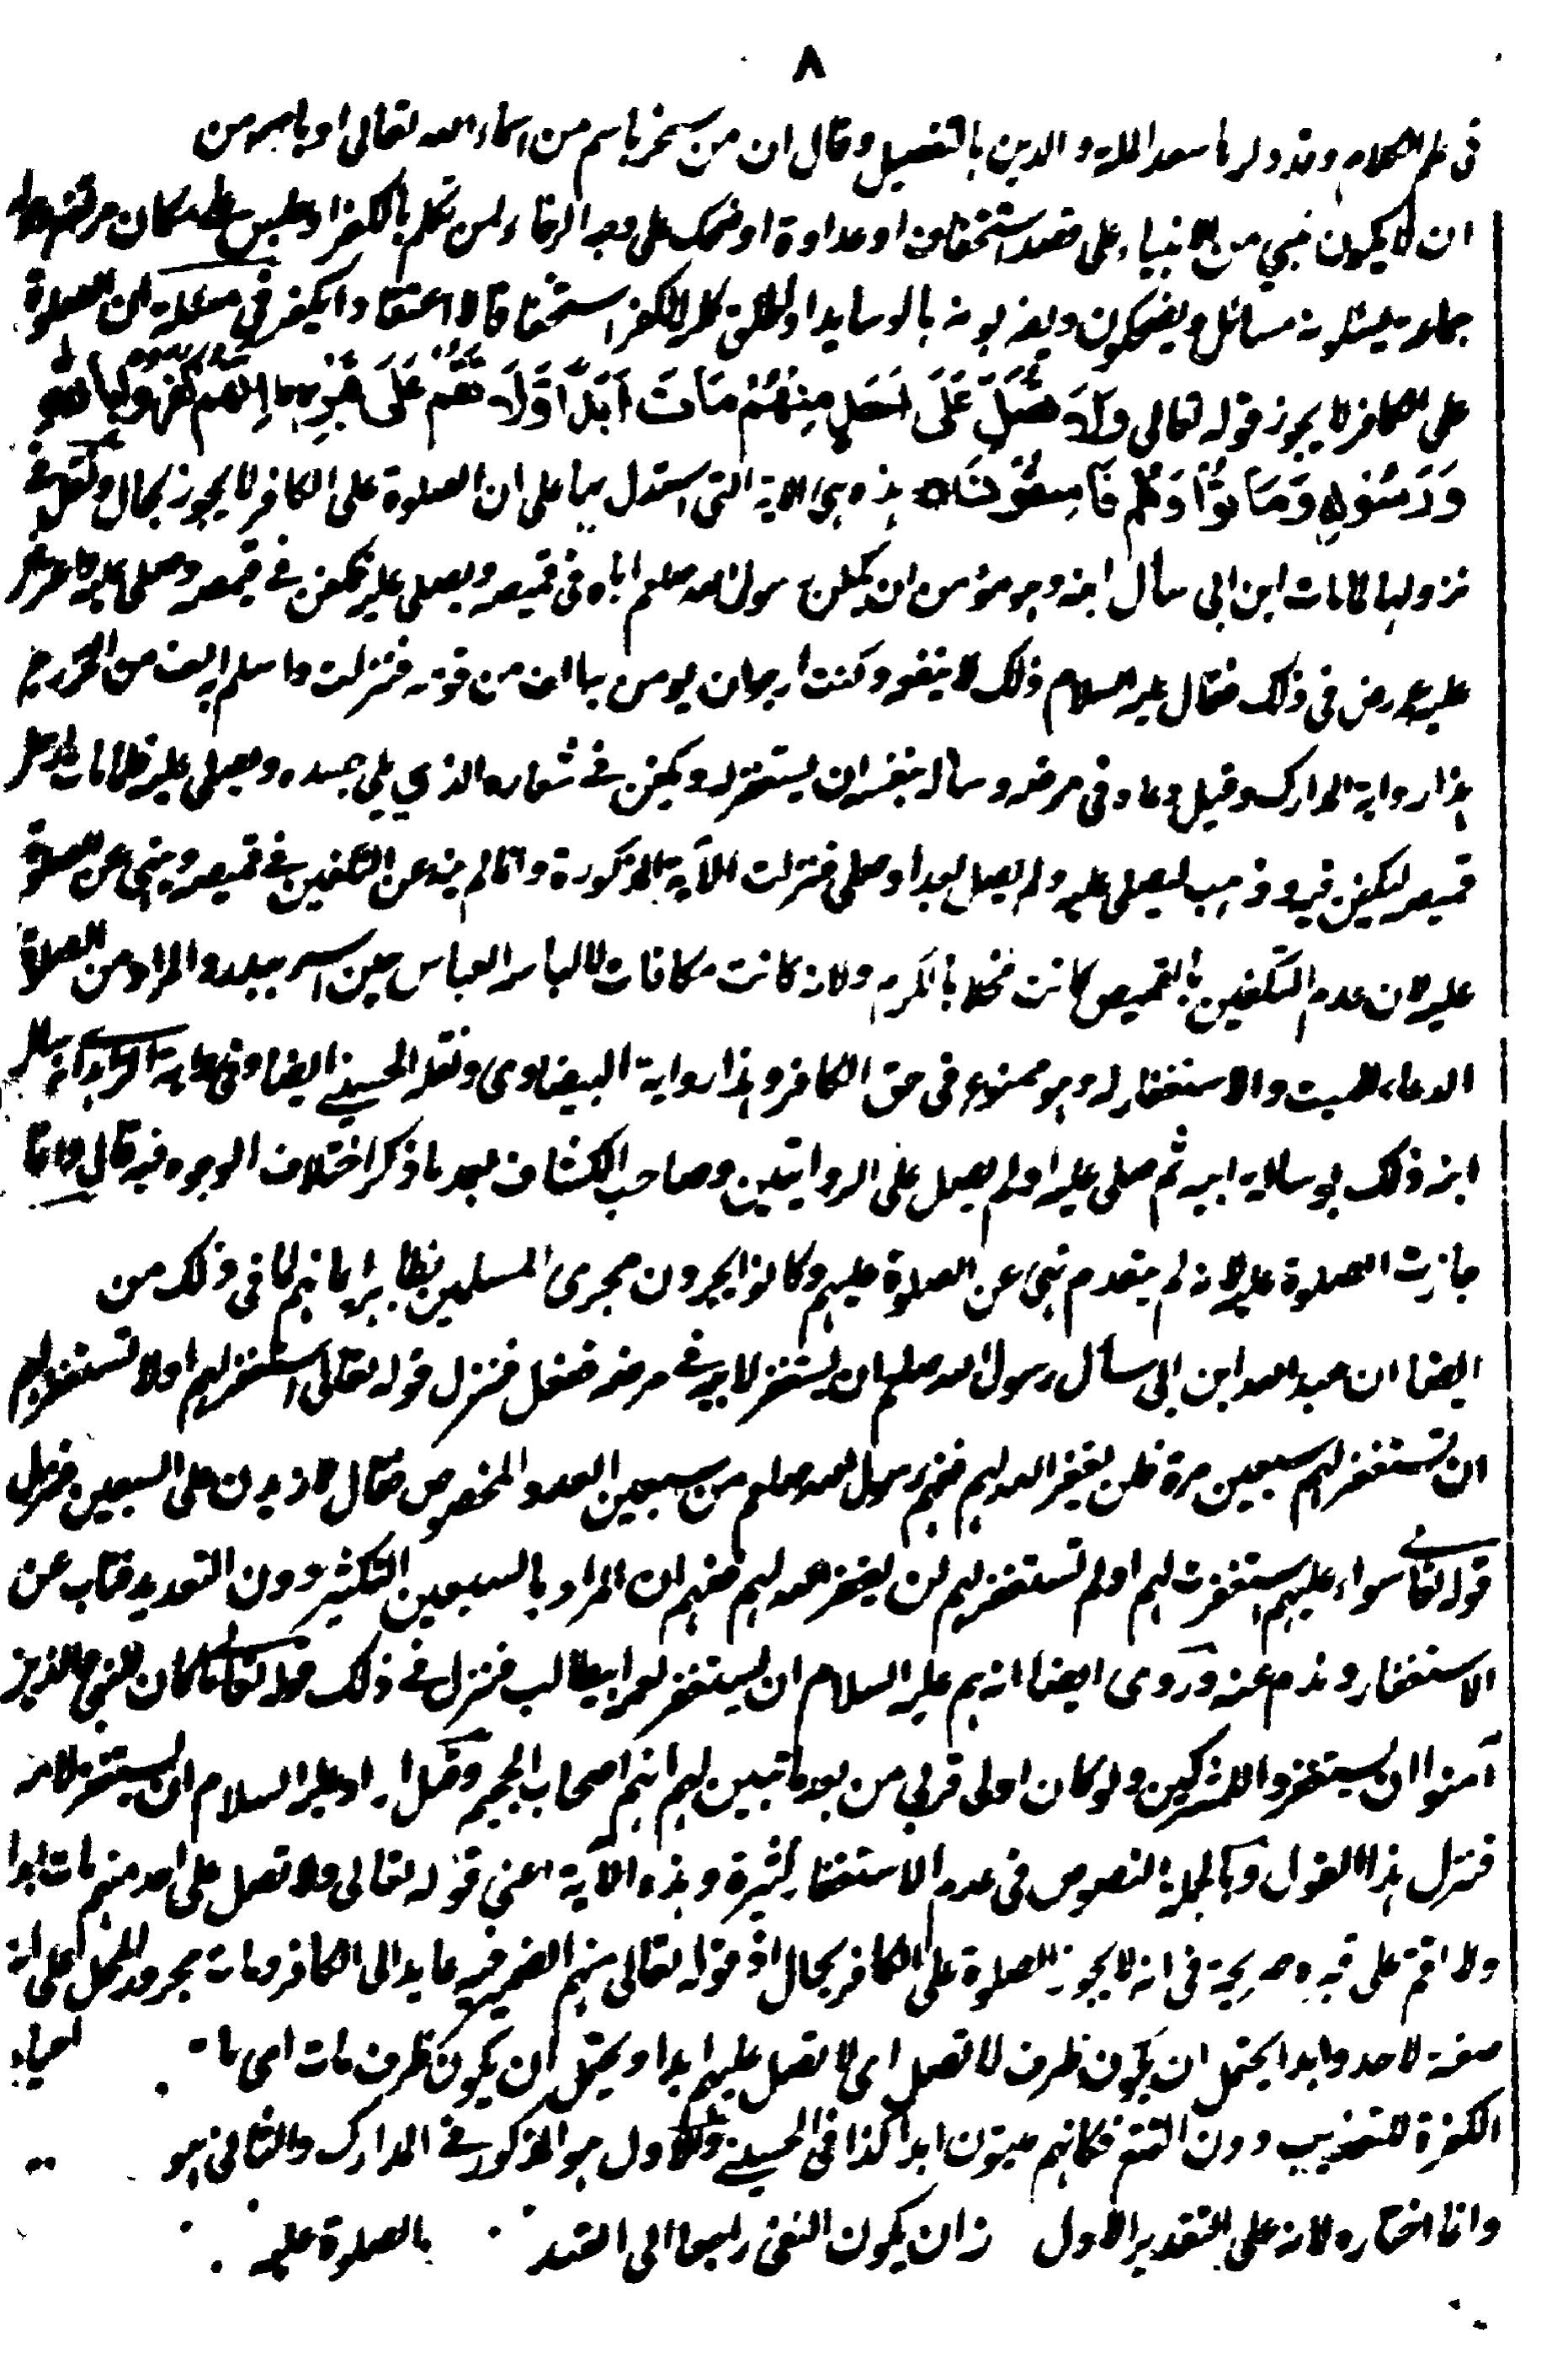 ٨
فى علم الكلام وقد ذكرها سعد الملة والدين بالتفصيل وقال ان من سخر باسم من اسماء الله تعالى او بامر من
ان لا يكون نبي من الانبياء على قصد استخفاف او عداوة او ضحك على وجه الرضاء لمن تكلم بالكفر او جلس على مكان مرتفع و
جماعة يسئلونه مسائل ويضحكون ويضربونه بالوسايد او اطلق كلمة الكفر استخفافا لا اعتقادا يكفر فى مسئلة ان الصلوة
على الكافر لا يجوز قوله تعالى وَلَا تُصَلِّ عَلَى أَحَدٍ مِنْهُمْ مَاتَ أَبَدًا وَلَا تَقُمْ عَلَى قَبْرِهِ إِنَّهُمْ كَفَرُوا بِاللَّهِ
وَرَسُولِهِ وَمَاتُوا وَهُمْ فَاسِقُونَ هذه هي الاية التى استدل بها على ان الصلوة على الكافر لا يجوز بحال ونقل فى
نزولها لما مات ابن ابى سأل ابنه وهو مؤمن ان يكفن رسول الله صلعم اباه فى قميصه ويصلى عليه فكفن فى قميصه وصلى عليه فاعترض
عليه عمر رض فى ذلك فقال عليه السلام ذلك لا ينفعه وكنت ارجوان يومن به الف من قومه فنزلت واسلم الف من الخزرج
هذا رواية المدارك وقيل دعاه فى مرضه وساله بنفسه ان يستغفر له ويكفن فى شعاره الذي يلي جسده ويصلى عليه فلما مات ارسل
قميصه ليكفن فيه وذهب ليصلى عليه ولم يصل بعد او صلى فنزلت الآية المذكورة وانما لم ينه عن التكفين فى قميصه ونهى عن الصلوة
عليه لان عدم التكفين بالقميص كانت مخلا بالكرم ولانه كانت مكافات لالباسه العباس حين اسر ببدر والمراد من الصلاة
الدعاء للميت والاستغفار له وهو ممنوع فى حق الكافر وهذا رواية البيضاوى ونقله الحسينى ايضا وفى رواية الزاهد انه سال
ابنه ذلك بوسالة ابيه ثم صلى عليه او لم يصل على الروايتين وصاحب الكشاف بعد ما ذكر اختلاف الوجوه فيه قال وانما
جازت الصلوة عليه لانه لم يتقدم نهى عن الصلوة عليهم وكانوا يجرون مجرى المسلمين بظاهر ايمانهم لما فى ذلك من
ايضا ان عبد الله ابن ابى سأل رسول الله صلعم ان يستغفر لابيه فى مرضه ففعل فنزل قوله تعالى استغفر لهم او لا تستغفر لهم
ان تستغفر لهم سبعين مرة فلن يغفر الله لهم ففهم رسول الله صلعم من سبعين العدد المخصوص فقال لازيدن على السبعين فنزل
قوله تعالى سواء عليهم استغفرت لهم او لم تستغفر لهم لن يغفر الله لهم ففهم ان المراد بالسبعين التكثير دون التعديد فتاب عن
الاستغفار وندم عنه وروى ايضا انه هم عليه السلام ان يستغفر لعمه ابيطالب فنزل فى ذلك قوله تعالى ما كان للنبى والذين
آمنوا ان يستغفروا للمشركين ولو كان اولى قربى من بعد ما تبين لهم انهم اصحاب الجحيم وقيل اراد عليه السلام ان يستغفر لامه
فنزل هذا القول وبالجملة النصوص فى عدم الاستغفار كثيرة وهذه الآية اعنى قوله تعالى ولا تصل على احد منهم مات ابدا
ولا تقم على قبره صريحة فى انه لا يجوز الصلوة على الكافر بحال اذ قوله تعالى منهم الضمير فيه عايد الى الكافر ومات مجرور المحل على انه
صفة لاحد وابدا يحتمل ان يكون ظرف لا تصل اى لا تصل عليهم ابدا ويحتمل ان يكون ظرف مات اى ما احياء
الكفرة للتعذيب دون التمتع فكانهم ميتون ابدا كذا فى الحسينى والاول هو المذكور فى المدارك والثانى هو
وانما اختاره لانه على التقدير الاول زان يكون النفى راجعا الى القيد بالصلوة عليه